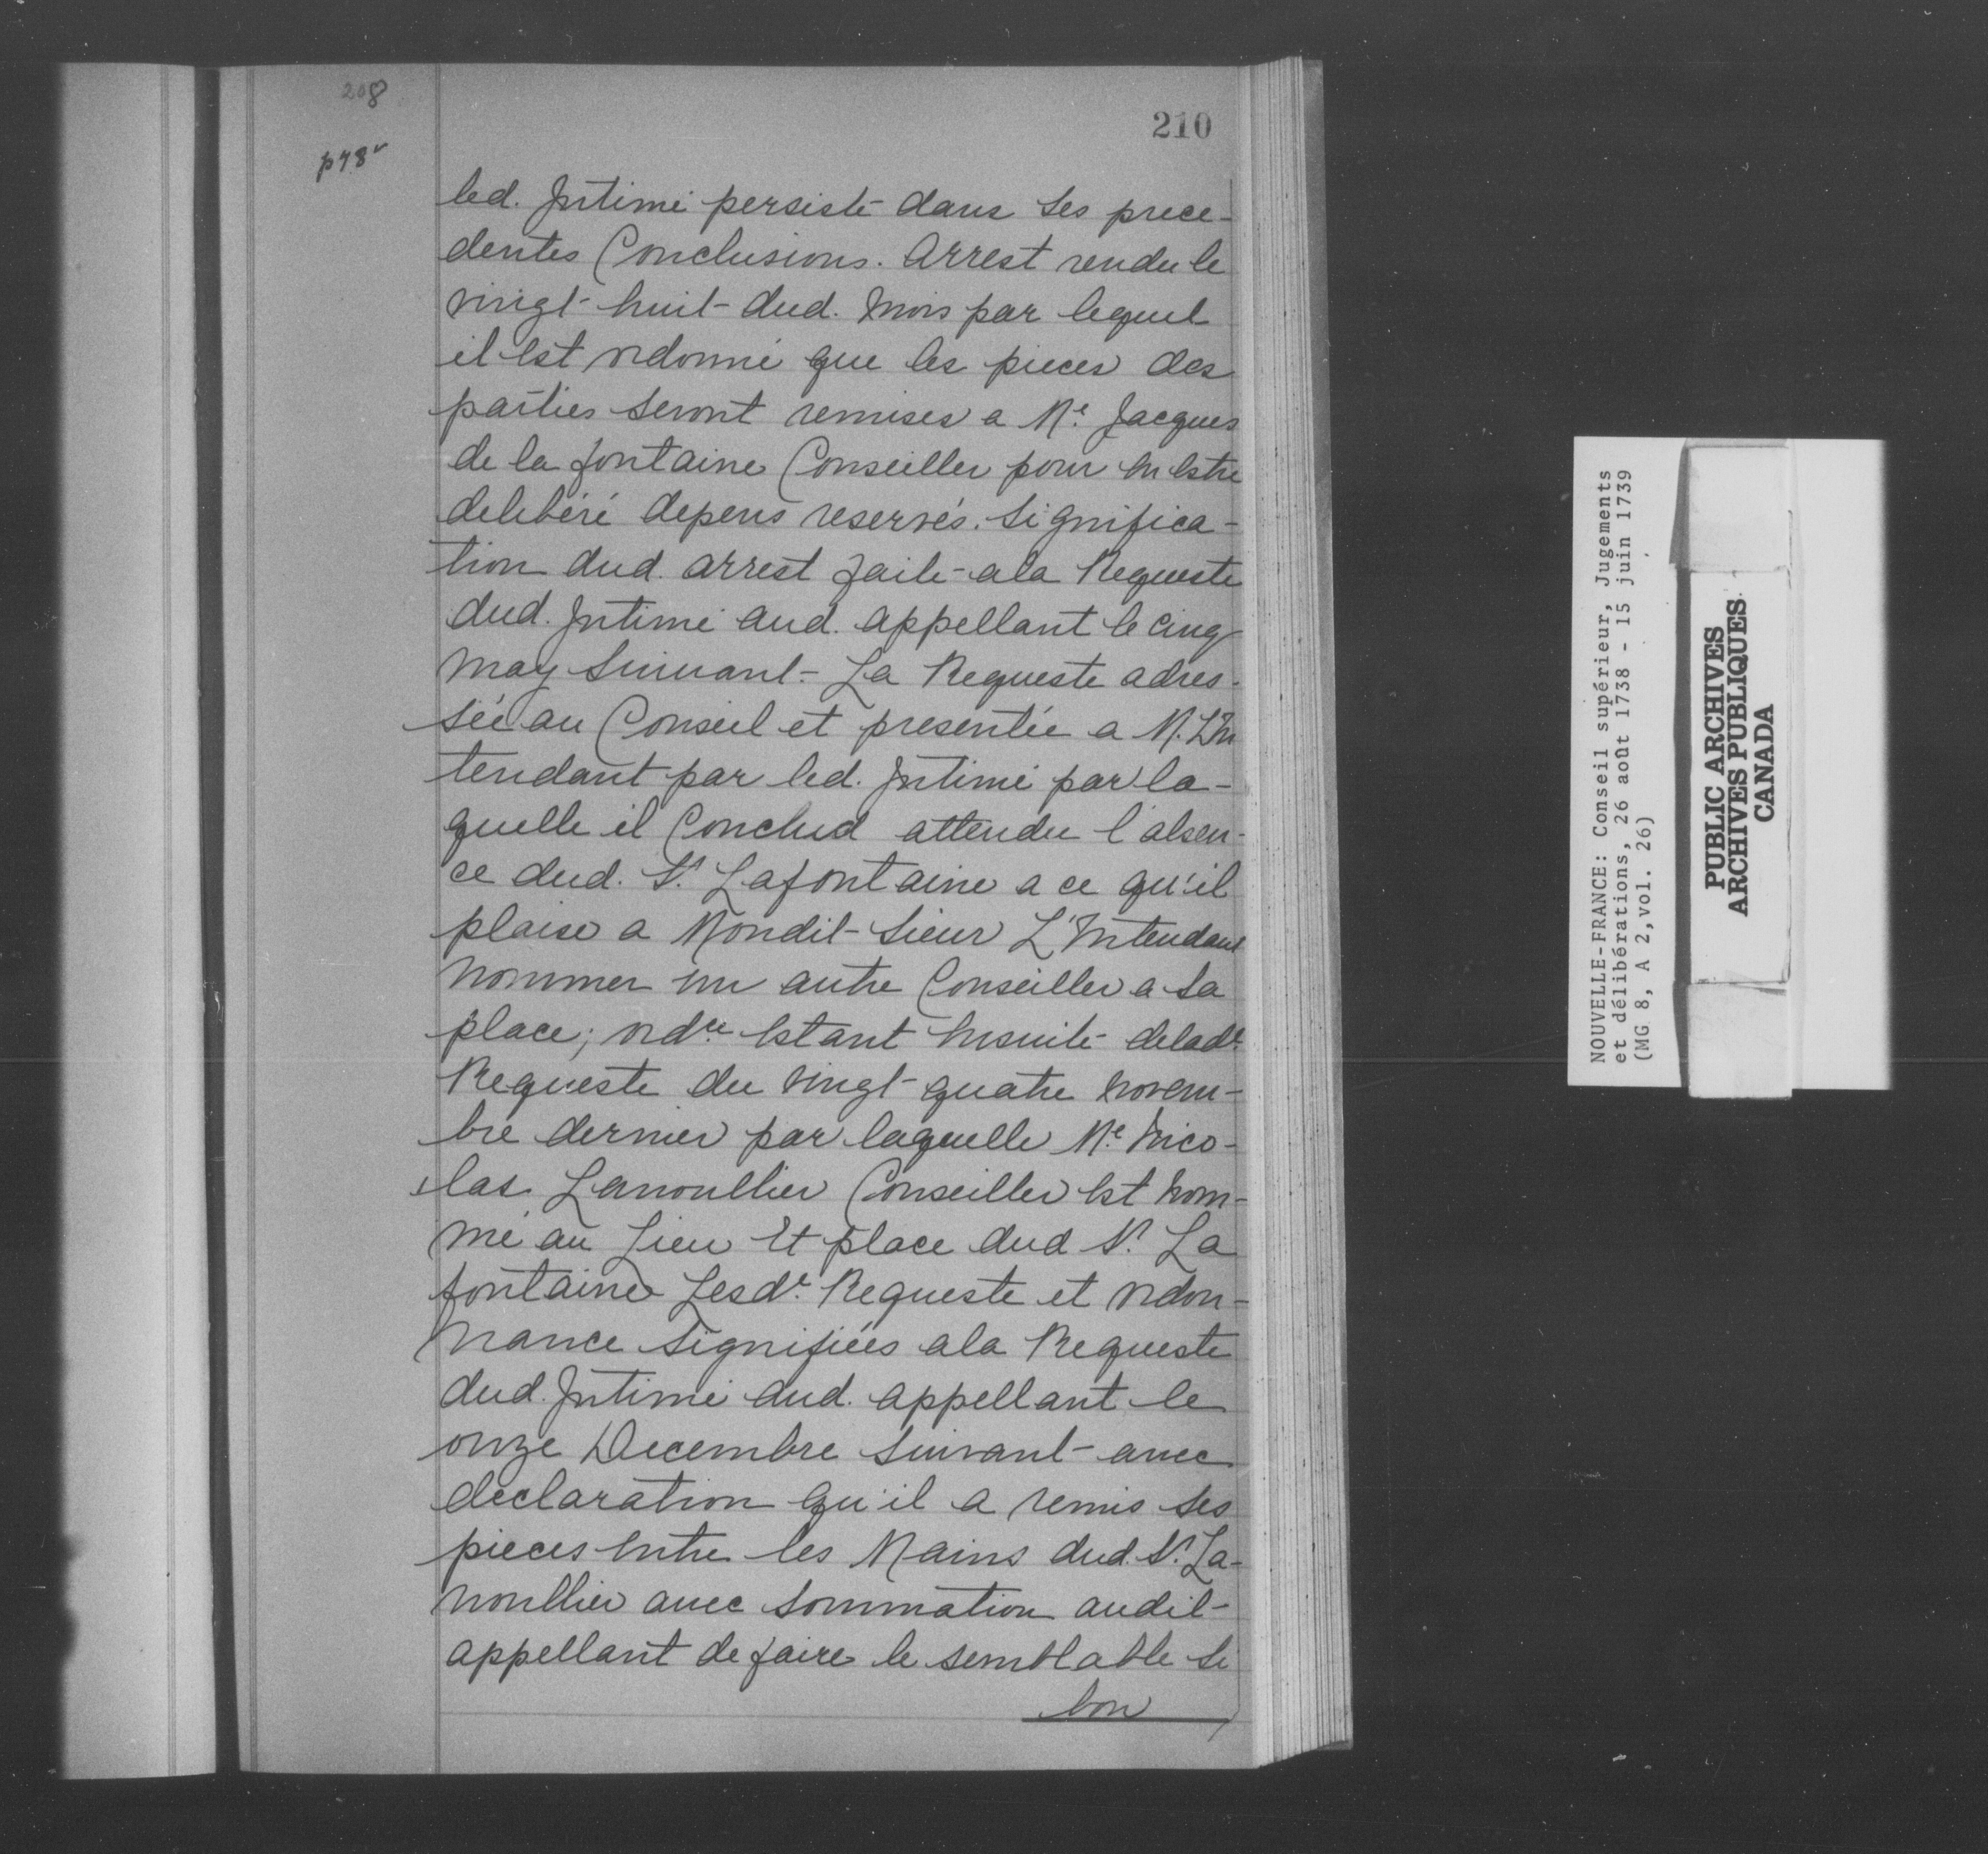 208
210
p48v
led. Intimé persiste dans ses prece-
dentes Conclusions. Arrest rendu le
vingt-huit dud. mois par lequel
il Est ordonné que les pieces des
parties seront remises a Me. Jacques
de la fontaine Conseiller pour En Estre
deliberé depens reservés. Significa-
tion dud. arrest faite ala Requeste
dud. Intimé aud. appellant le Cinq
may Suivant. La Requeste adres-
sée au Conseil et presentée a M. L'In
tendant par led. Intimé par la-
quelle il Conclud attendu l'absen-
ce dud. Sr. Lafontaine a ce qu'il
plaise a Mondit Sieur L'Intendant
nommer un autre Conseiller a Sa
place; ordce Estant Ensuite delade.
Requeste du vingt quatre novem-
bre dernier par laquelle Me. Nico-
las Lanoullier Conseiller Est nom-
mé au Lieu Et place dud Sr. La
fontaine Lesde. Requeste et ordon-
nance Signifiées ala Requeste
dud. Intimé aud. appellant le
onze Decembre Suivant avec
declaration qu'il a remis Ses
pieces Entre les Mains dud. Sr. La-
noullier avec Sommation audit
appellant de faire le semblable Si
bon
NOUVELLE-FRANCE: Conseil supérieur, Jugements
et délibérations, 26 août 1738 - 15 juin 1739
(MG 8, A 2, vol. 26)
PUBLIC ARCHIVES
ARCHIVES PUBLIQUES
CANADA